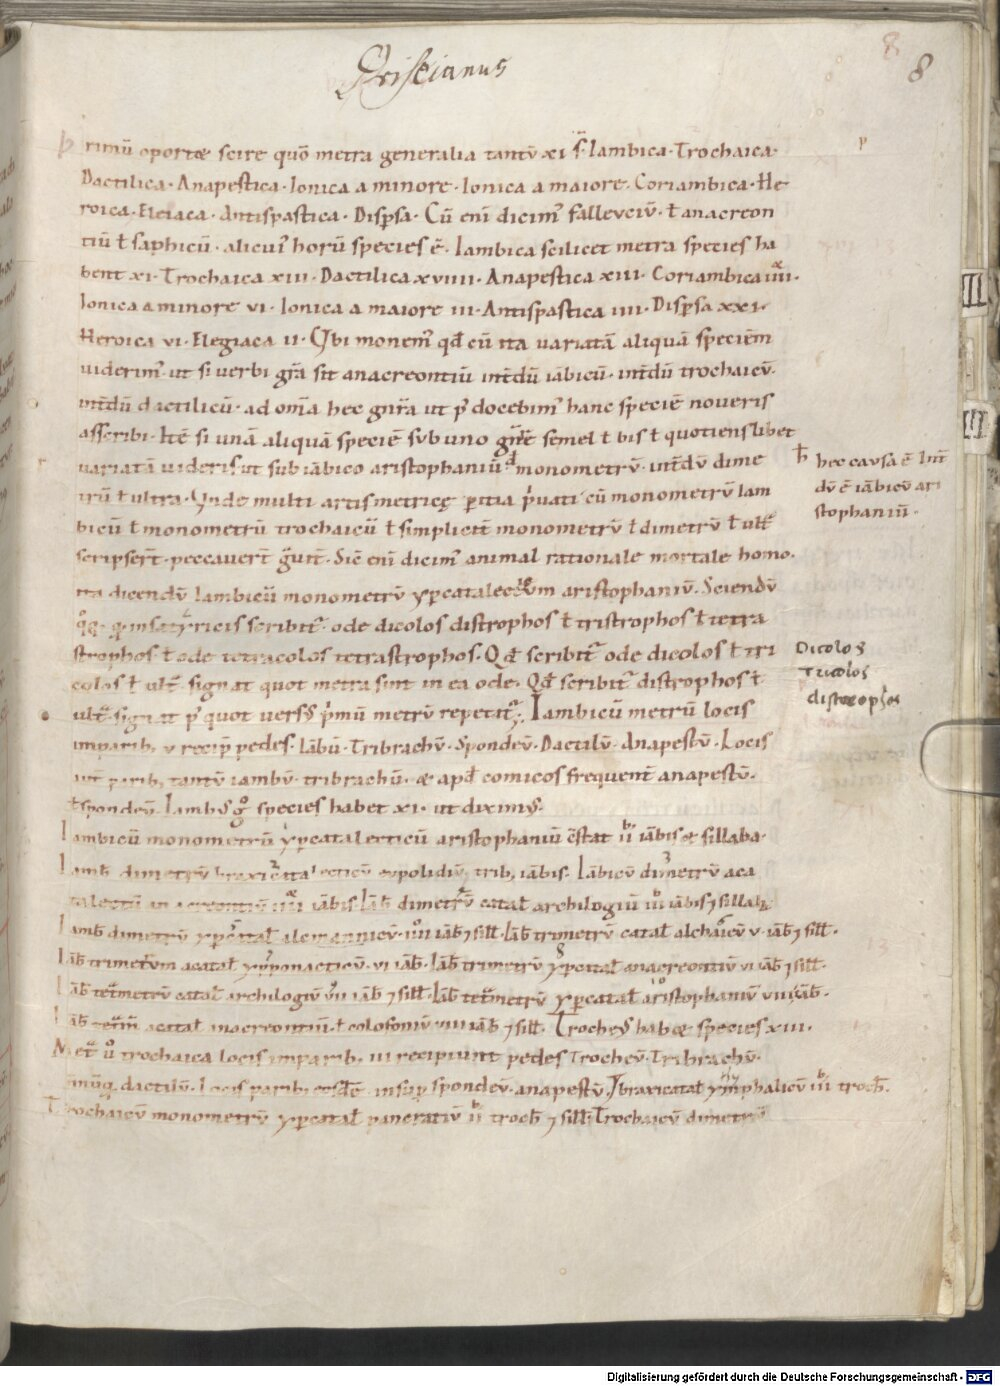 Priscianus
8
8
p rimū oportet scire quō metra generalia tantū xi s̄. Iambica. Trochaica.
Dactilica. Anapestica. Ionica a minore. Ionica a maiore. Coriambica. He
roica. Eleiaca. Antispastica. Disp̄sa. Cū eni dicim' fallevciū. ł anacreon
tiū ł saphicū. alicui' horū species ē. Iambica scilicet metra species ha
bent xi. Trochaica xiii. Dactilica xviiii. Anapestica xiii. Coriambica iiii.
Ionica a minore vi. Ionica a maiore iii. Antispastica iiii. Disp̄sa xxi.
Heroica vi. Elegiaca ii. Qbi monem' qđ cū ita variatā aliquā speciēm
viderim' ut si verbi gr̄a sit anacreontiū int̄dū iābicū. int̄dū trochaicū.
int̄dū dactilicū. ad om̄a hec gn̄ra ut p̄ docebim' hanc speciē noveris
asscribi. Itē si unā aliquā speciē sub uno gn̄re semel ł bis ł quotienslibet
variatā videris ut sub iābico aristophaniū monometrū. int̄dū dime
trū ł ultra. Unde multi artis metricę p̄itia p̄vati cū monometrū Iam
bicū ł monometrū trochaicū ł simplicit̄ monometrū ł dimetrū ł ult̄
scripser̄t. peccaver̄t gͣvit̄. Sic̄ eni dicim' animal rationale mortale homo.
ita dicendū Iambicū monometrū yp̄catalecticum aristophaniū. Sciendū
qͦq; qͣ in satyricis scribit̄ ode dicolos distrophos ł tristrophos ł tetra
strophos ł ode tetracolos tetrastrophos. Qđ scribit̄ ode dicolos ł tri
colos ł ult̄ signat quot metra sunt in ea ode. Qđ scribit̄ distrophos ł
ult̄ signat p̄ quot vers' p̄mū metrū repetit̄. Iambicū metrū locis
imparib; v recip̄ pedes. Iābū. Tribrachū. Spondeū. Dactilū. Anapestū. Locis
aut̄ parib; tantū iambū. tribrachū. et apđ comicos frequent̄ anapestū.
ł spondeū. Iamb' gͦ species habet xi. ut diximus.
Iambicū monometrū yp̄catalecticū aristophaniū c̄stat ii iābis et sillaba.
Iamb̄ dimetrū braxicatalecticū eupolidiū trib; iābis. Iābicū dimetrū aca
talectū anacreontiū iiii iābis. Iāb̄ dimetrū catał archilogiū iii iābis ⁊ sillab
Iamb̄ dimetrū yp̄catał alcmannicū iiii iāb̄ ⁊ sił. Iāb̄ trimetrū catał alchaicū v. iāb̄ ⁊ sił.
Iāb̄ trimetrum acatał ypponacticū. vi iāb̄. Iāb̄ trimetrū yp̄catał anacreontiū vi iāb̄ ⁊ sił.
Iāb̄ tetͣmetrū catał archilogiū vii iāb̄ ⁊ sił. Iāb̄ tetͣmetrū yp̄catał aristophaniū viii iāb̄.
Iāb̄ tetͣm̄ acatał anacreontiū. ł colofoniū viii iāb̄ ⁊ sił. Troche' habet species xiii.
Metͣ ů trochaica locis imparib; iii recipiunt pedes Trocheū. Tribrachū.
dactilū. Locis parib; eosdē. insup̄ spondeū. anapestū. Ibraxicatał ymphalicū iii troch̄.
Trochaicū monometrū yp̄catał pancratiū ii troch̄ ⁊ sił. Trochaicū dimetrū
hec causa ē. Int̄
dū ē iābicū ari
stophaniū.
Dicolos
Tricolos
distrophos
Digitalisierung gefördert durch die Deutsche Forschungsgemeinschaft - DFG